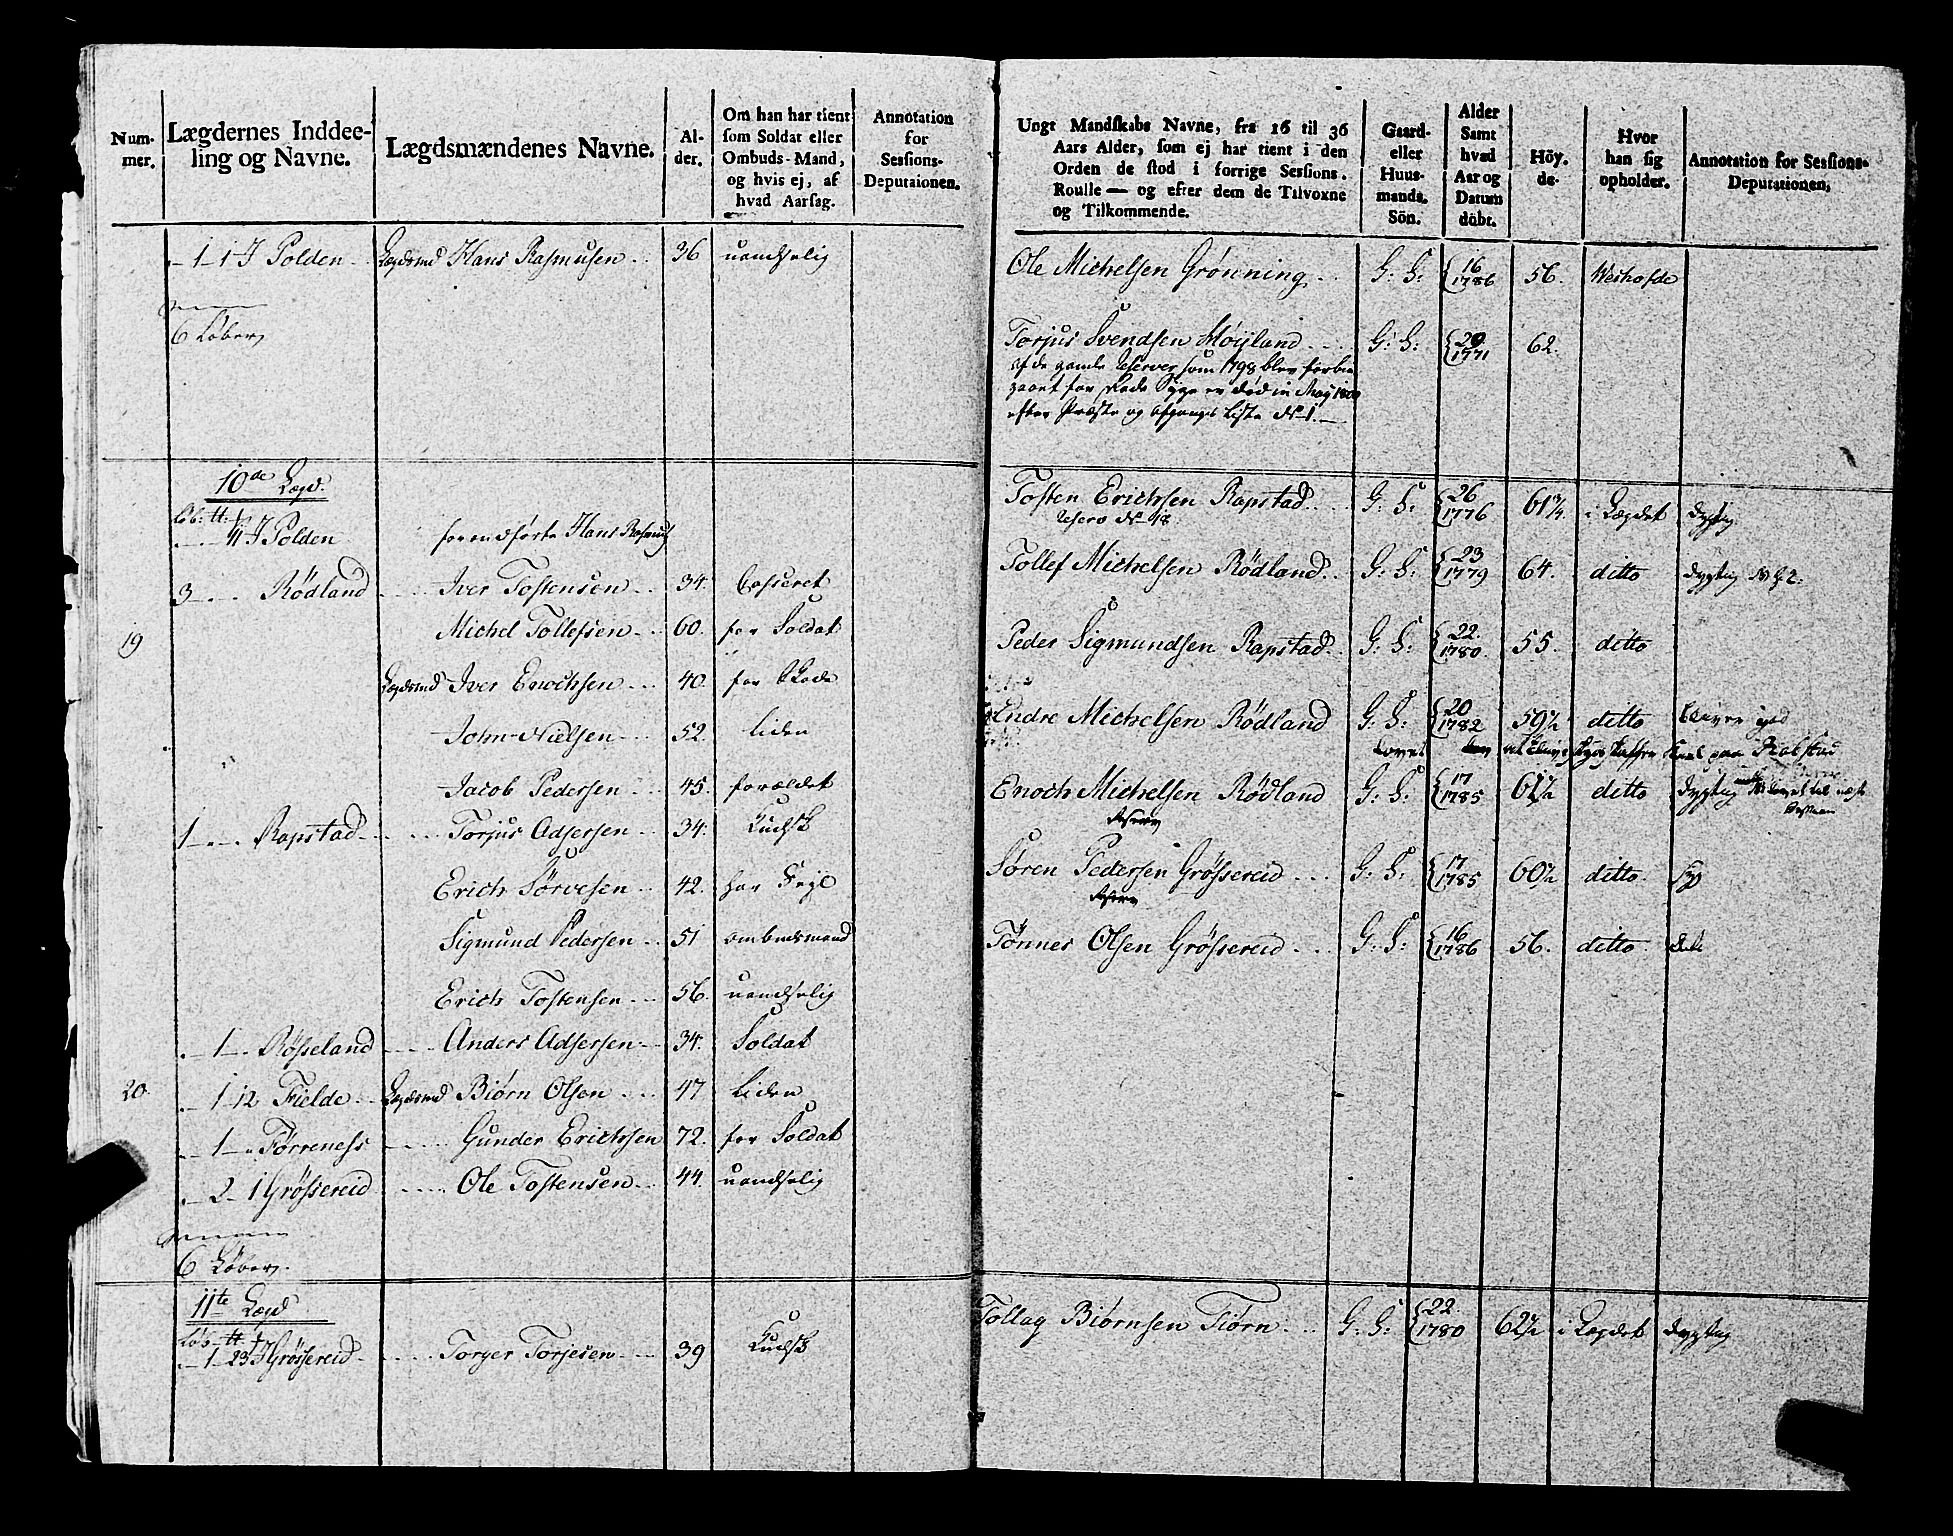 Num-
mer.
Lægdernes Inddee-
ling og Navne.
Lægdsmændenes Navne.
Al-
der.
Om han har tient
som Soldat eller
Ombuds-Mand,
og hvis ej, af
hvad Aarsag.
Annotation
for
Sessions-
Deputaionen.
1 1 J Polden Lægdsmd Hans Rasmusen 36 uandselig
6 Løber
10de Lægd.
Løb: tt:
J Polden foranførte Hans Rasmus
3 Rödland Iver Tostensen 34. Casseret
19 Michel Tollefsen 60. for Soldat
Lægdsmd Iver Enochsen 40. for Skade
John Nielsen 52. liden
Jacob Pedersen 45. forældet
1 Rapstad Torjus Adsersen 34. Kudsk
Erich Sørvesen 42. har Fejl
Sigmund Pedersen 51 ombudsmand
Erich Tostensen 56. uandselig
1 Røsseland Anders Adsersen 34. Soldat
20. 1 12 Fielde Lægdsmd Biørn Olsen 47 liden
1 Førreness Gunder Erichsen 72. for Soldat
2 1 Grössereid Ole Tostensen 44. uandselig
6 Løber.
11te Lægd
Løb: tt:
1 23 J Grössereid Torger Torjesen 39 Kudsk
Ungt Mandskabs Navne, fra 16 til 36
Aars Alder, som ej har tient i den
Orden de stod i forrige Sessions-
Roulle — og efter dem de Tilvoxne
og Tilkommende.
Gaard-
eller
Huus-
mands.
Sön.
Alder
Samt
hvad
Aar og
Datum
döbt.
Höy-
de.
Hvor
han sig
opholder.
Annotation for Sessions-
Deputationen.
Ole Michelsen Grønning G: S: {16 1786 56. Weshofde
Torjus Svendsen Møijland G: S: {29 1771 62.
af de gamle Reserver som 1798 blev forbie
gaaet for Skade Syge er død in May 1800
efter Præste og afgangs Liste No 1.
Tosten Erichsen Rapstad G: S: {26 1776 61 3/4 i Lægdet dygtig
Reserv No 18
Tollef Michelsen Rödland G: S: {23 1779 64. ditto dygtig
Peder Sigmundsen Rapstad G: S: {22. 1780. 55. ditto
Endre Michelsen Rödland G: S: {20 1782 59 1/2 ditto
Enoch Michelsen Rödland G: S: {17 1785 61 1/2 ditto dygtig
Reserv
Søren Pedersen Grössereid G: S: {17 1785 60 1/2 ditto.
Reserv
Tønnes Olsen Grössereid G: S: {16 1786 56. ditto
Tollag Biørnsen Tiørn G: S: {22. 1780 62 1/2 i Lægdet dygtig